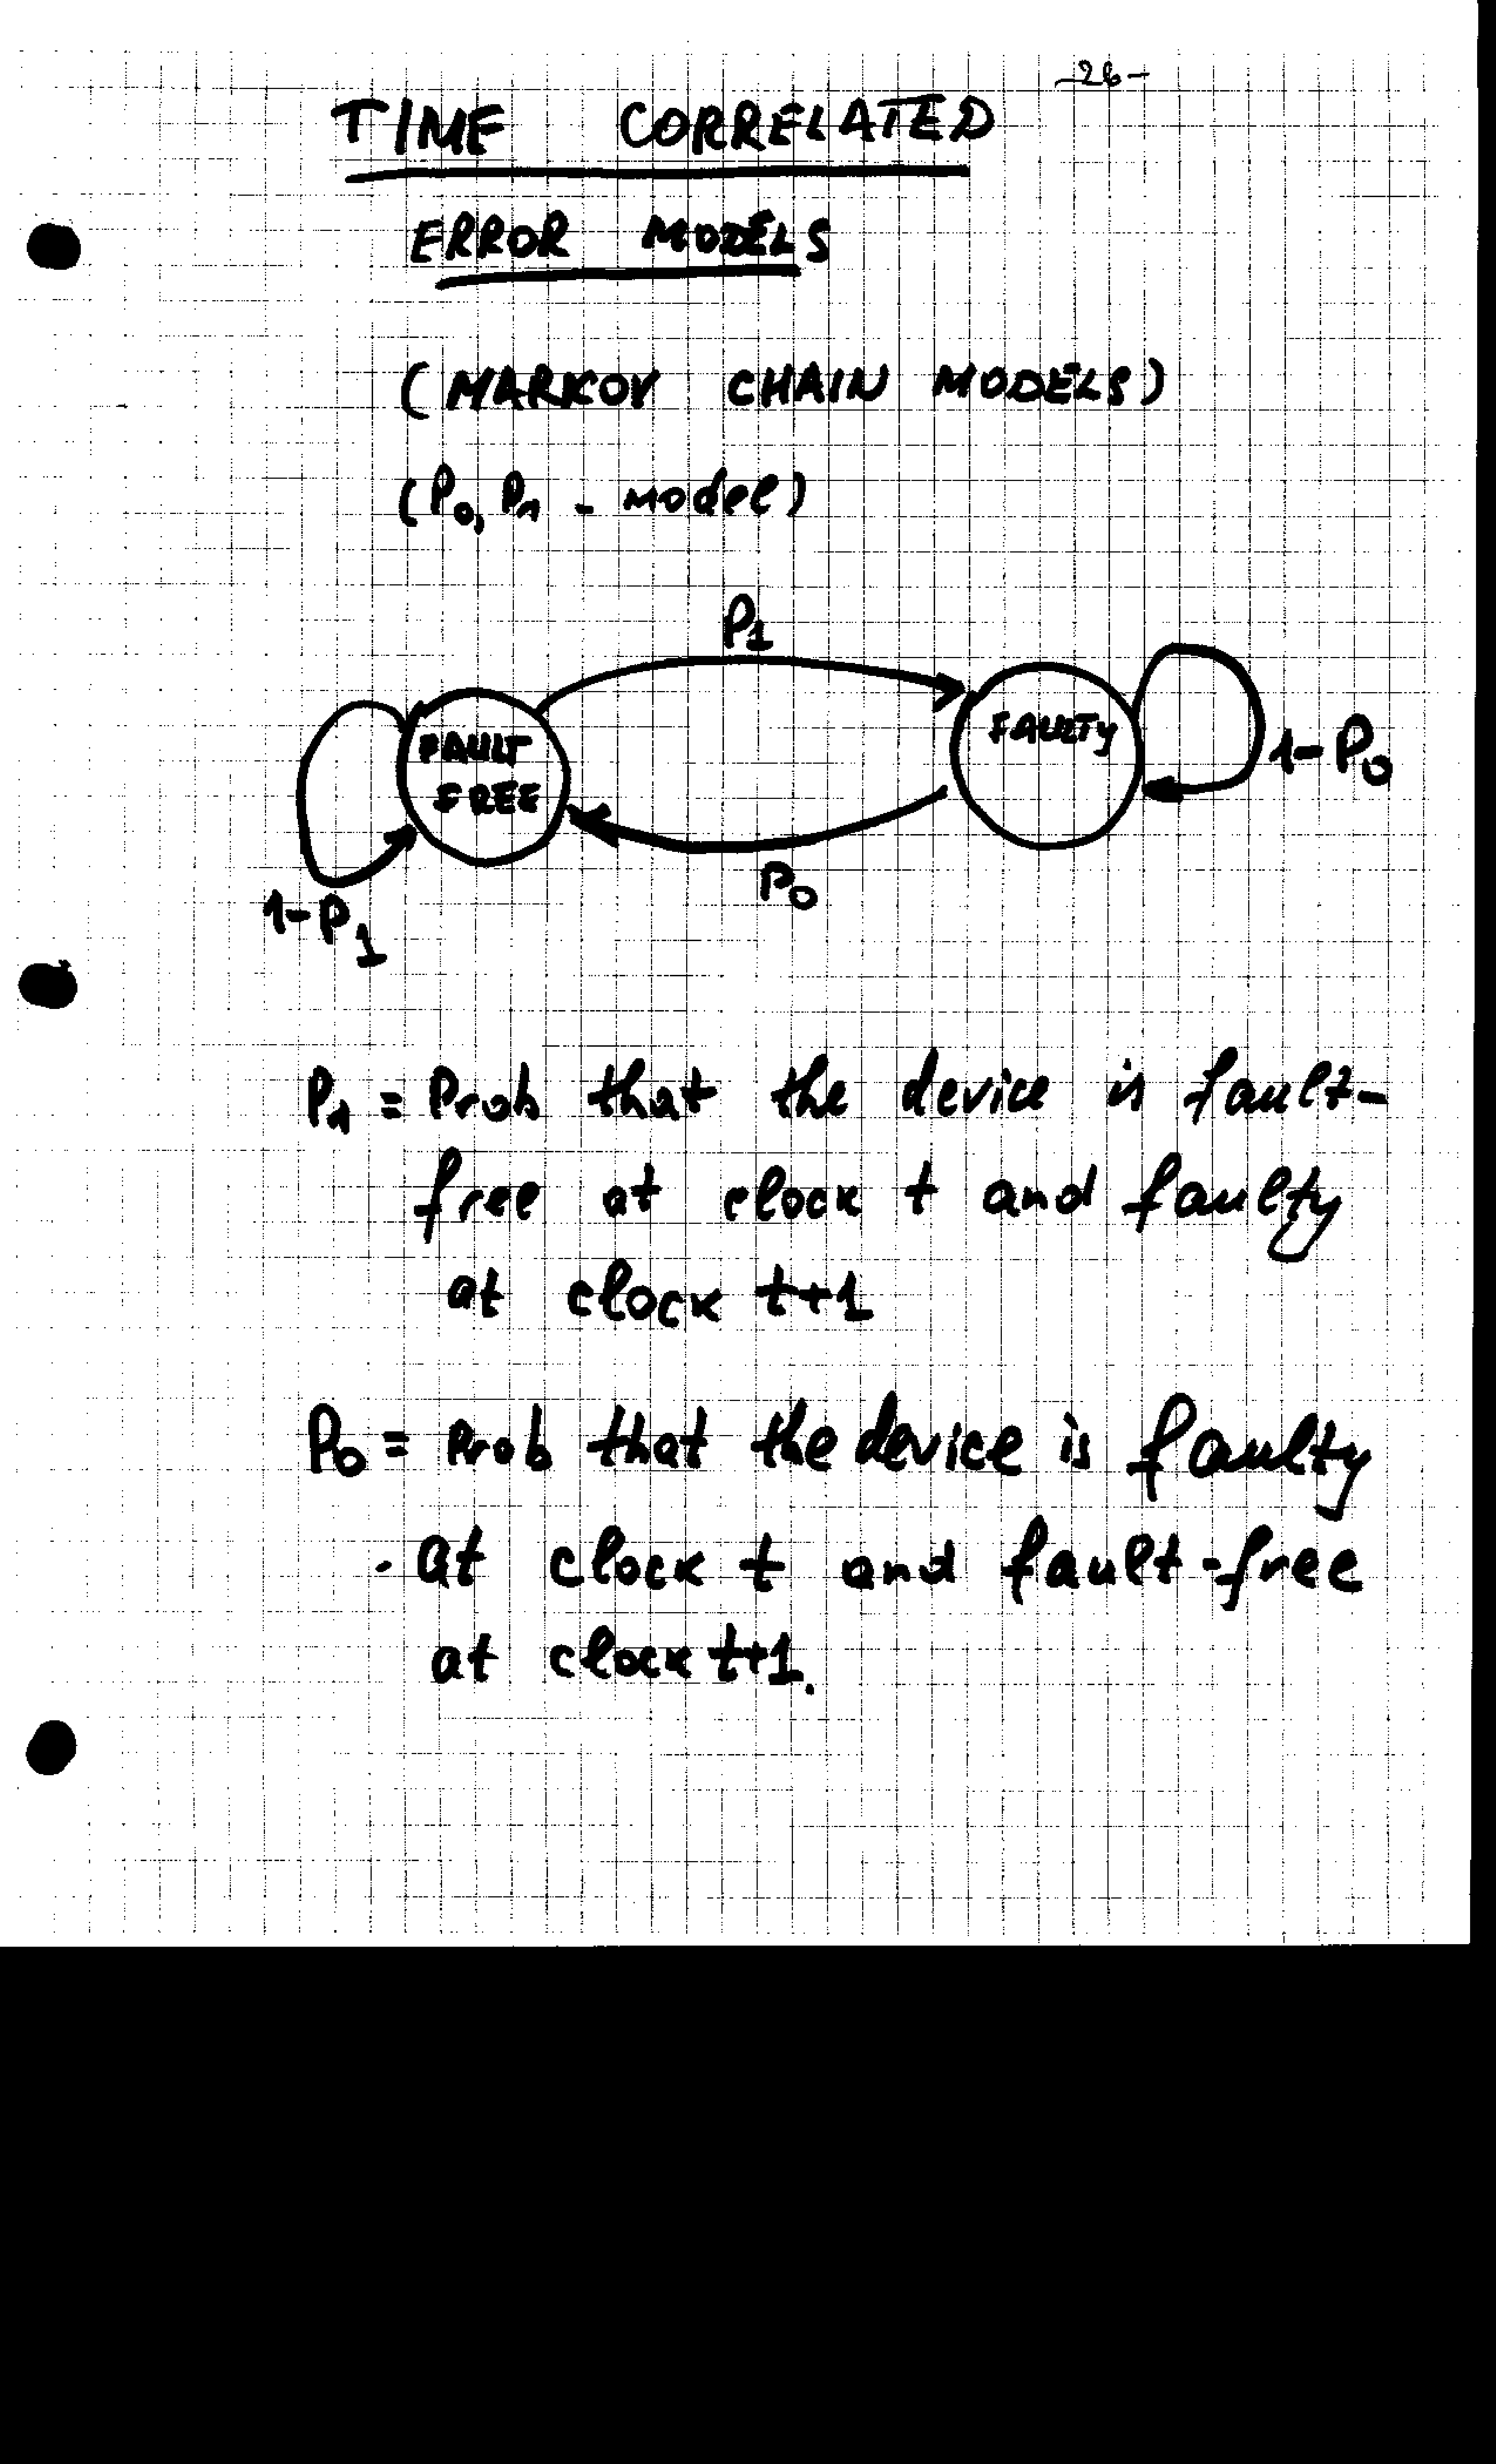 -26-
TIME CORRELATED
ERROR MODELS
(MARKOV CHAIN MODELS)
(P0, P1 - model)
P1
FAULT
FREE
FAULTY
1-P0
P0
1-P1
P1 = Prob that the device is fault-
free at clock t and faulty
at clock t+1
P0 = Prob that the device is faulty
at clock t and fault-free
at clock t+1.